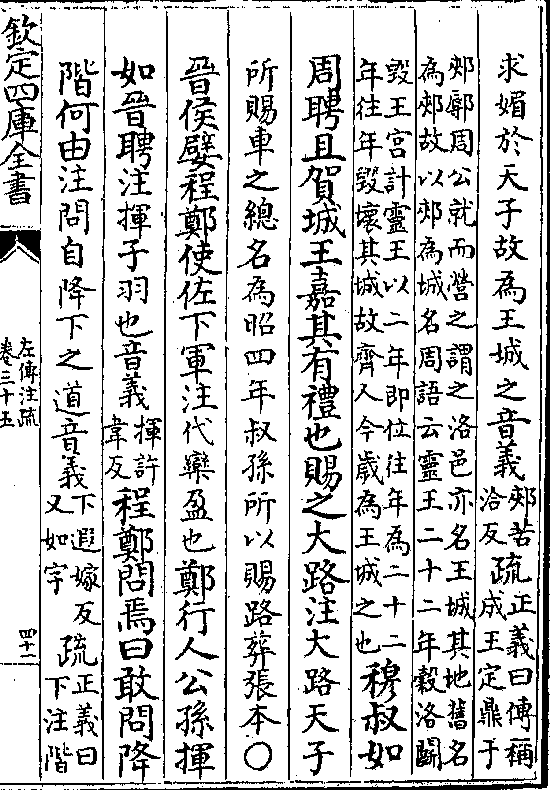 求媚於天子故為王城之音義郟苦洽反疏正義曰傳稱成王定鼎于
郟鄏周公就而營之謂之洛邑亦名王城其地舊名
為郟故以郟為城名周語云靈王二十二年榖洛鬭
毀王宮計靈王以二年即位往年為二十二
年往年毀壞其城故齊人今歲為王城之也穆叔如
周聘且賀城王嘉其有禮也賜之大路注大路天子
所賜車之總名為昭四年叔孫所以賜路葬張本○
晉侯嬖程鄭使佐下軍注代欒盈也鄭行人公孫揮
如晉聘注揮子羽也音義揮許韋反程鄭問焉曰敢問降
階何由注問自降下之道音義下遐嫁反又如字疏正義曰下注階
欽定四庫全書
左傳注疏
卷三十五
四十一